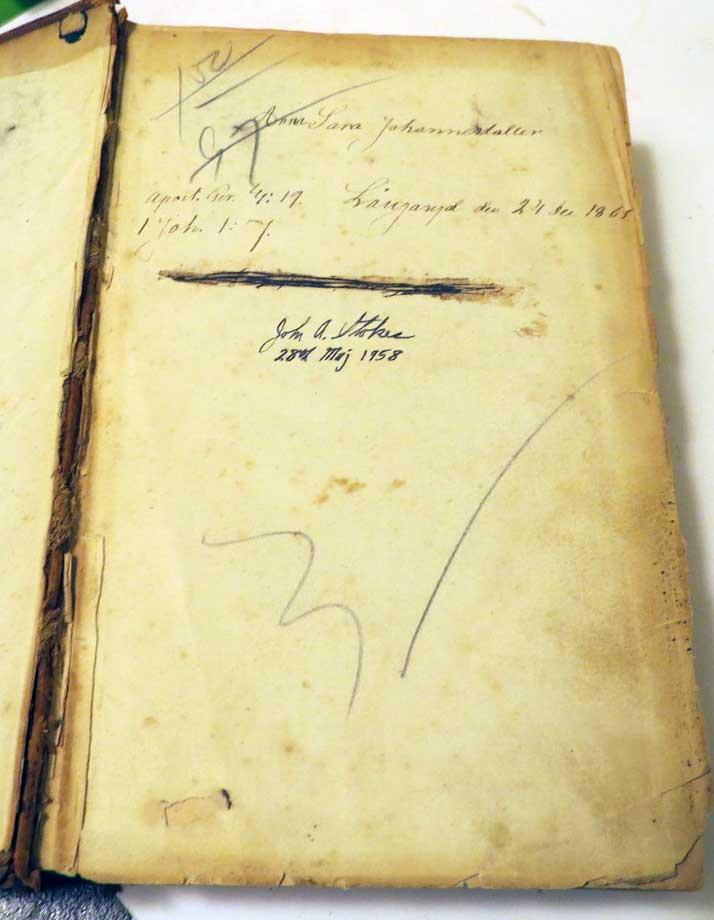 100
Anna Sara Johannesdatter
Apost. Ger. 4: 19. Långaryd den 24 Dec 1865
1 Joh. 1: 7.
John A. Stokes
28de Maj 1958